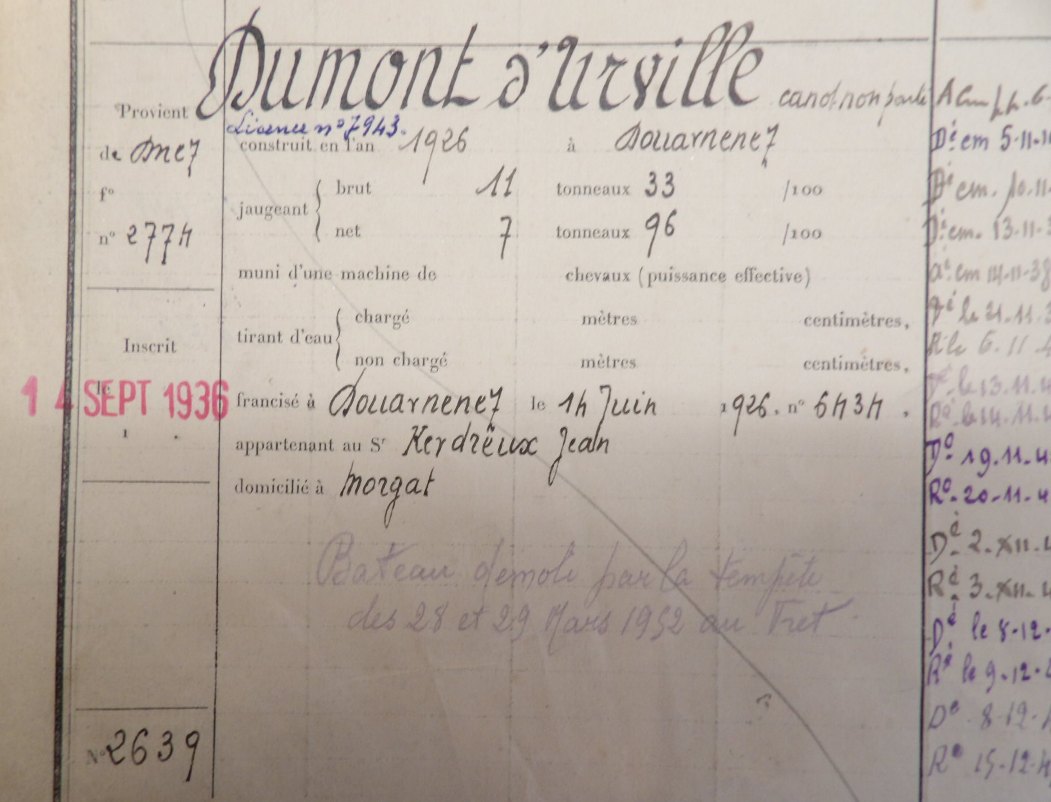 Dumont d'Urville canot non ponté
Licence n° 7943.
Provient
de Dnez
f°
n° 2774
construit en l'an 1926 à Douarnenez
jaugeant
brut 11 tonneaux 33 /100
net 7 tonneaux 96 /100
muni d'une machine de chevaux (puissance effective)
tirant d'eau
chargé mètres centimètres,
non chargé mètres centimètres,
Inscrit
le
14 SEPT 1936
francisé à Douarnenez le 14 Juin 1926. n° 6434.
appartenant au Sr Kerdreux Jean
domicilié à Morgat
Bateau démoli par la tempête
des 28 et 29 Mars 1952 au Fret
N° 2639
Dé em 5-11-
Dé em. 10-11-
Dé em. 13-11-3
a° em 14-11-38
Dé le 21.11.3
R le 6.11.4
Dé le 13.11.4
Ré le 14.11.4
Dé 19.11.4
Ré. 20-11-4
Dé 2.XII.4
Ré 3.XII.4
Dé le 8-12-
Ré le 9-12-4
Dé 8-12-
Ré 15-12-4